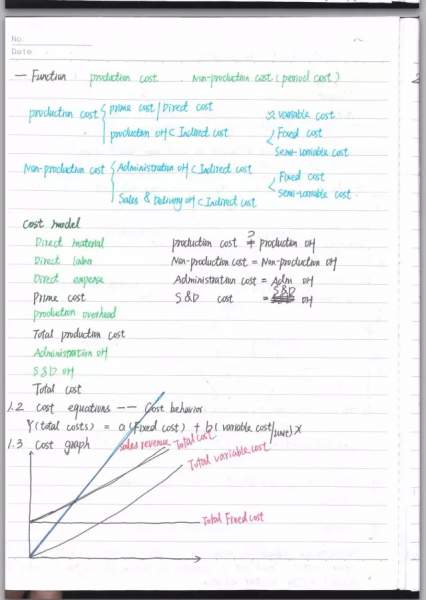 No.
Date
— Function production cost Non-production cost (period cost)
production cost { prime cost / Direct cost → variable cost
production OH < Indirect cost < Fixed cost
Semi-variable cost
Non-production cost { Administration OH < Indirect cost < Fixed cost
Sales & Delivery OH < Indirect cost Semi-variable cost
Cost model
Direct material production cost ≠ production OH
?
Direct labor Non-production cost = Non-production OH
Direct expense Administration cost = Adm OH
Prime cost S&D cost = S&D OH
production overhead
Total production cost
Administration OH
S&D OH
Total cost
1.2 cost equations —— Cost behavior
Y(total costs) = a (Fixed cost) + b (variable cost/unit) x
1.3 cost graph Sales revenue Total cost
Total variable cost
Total Fixed cost